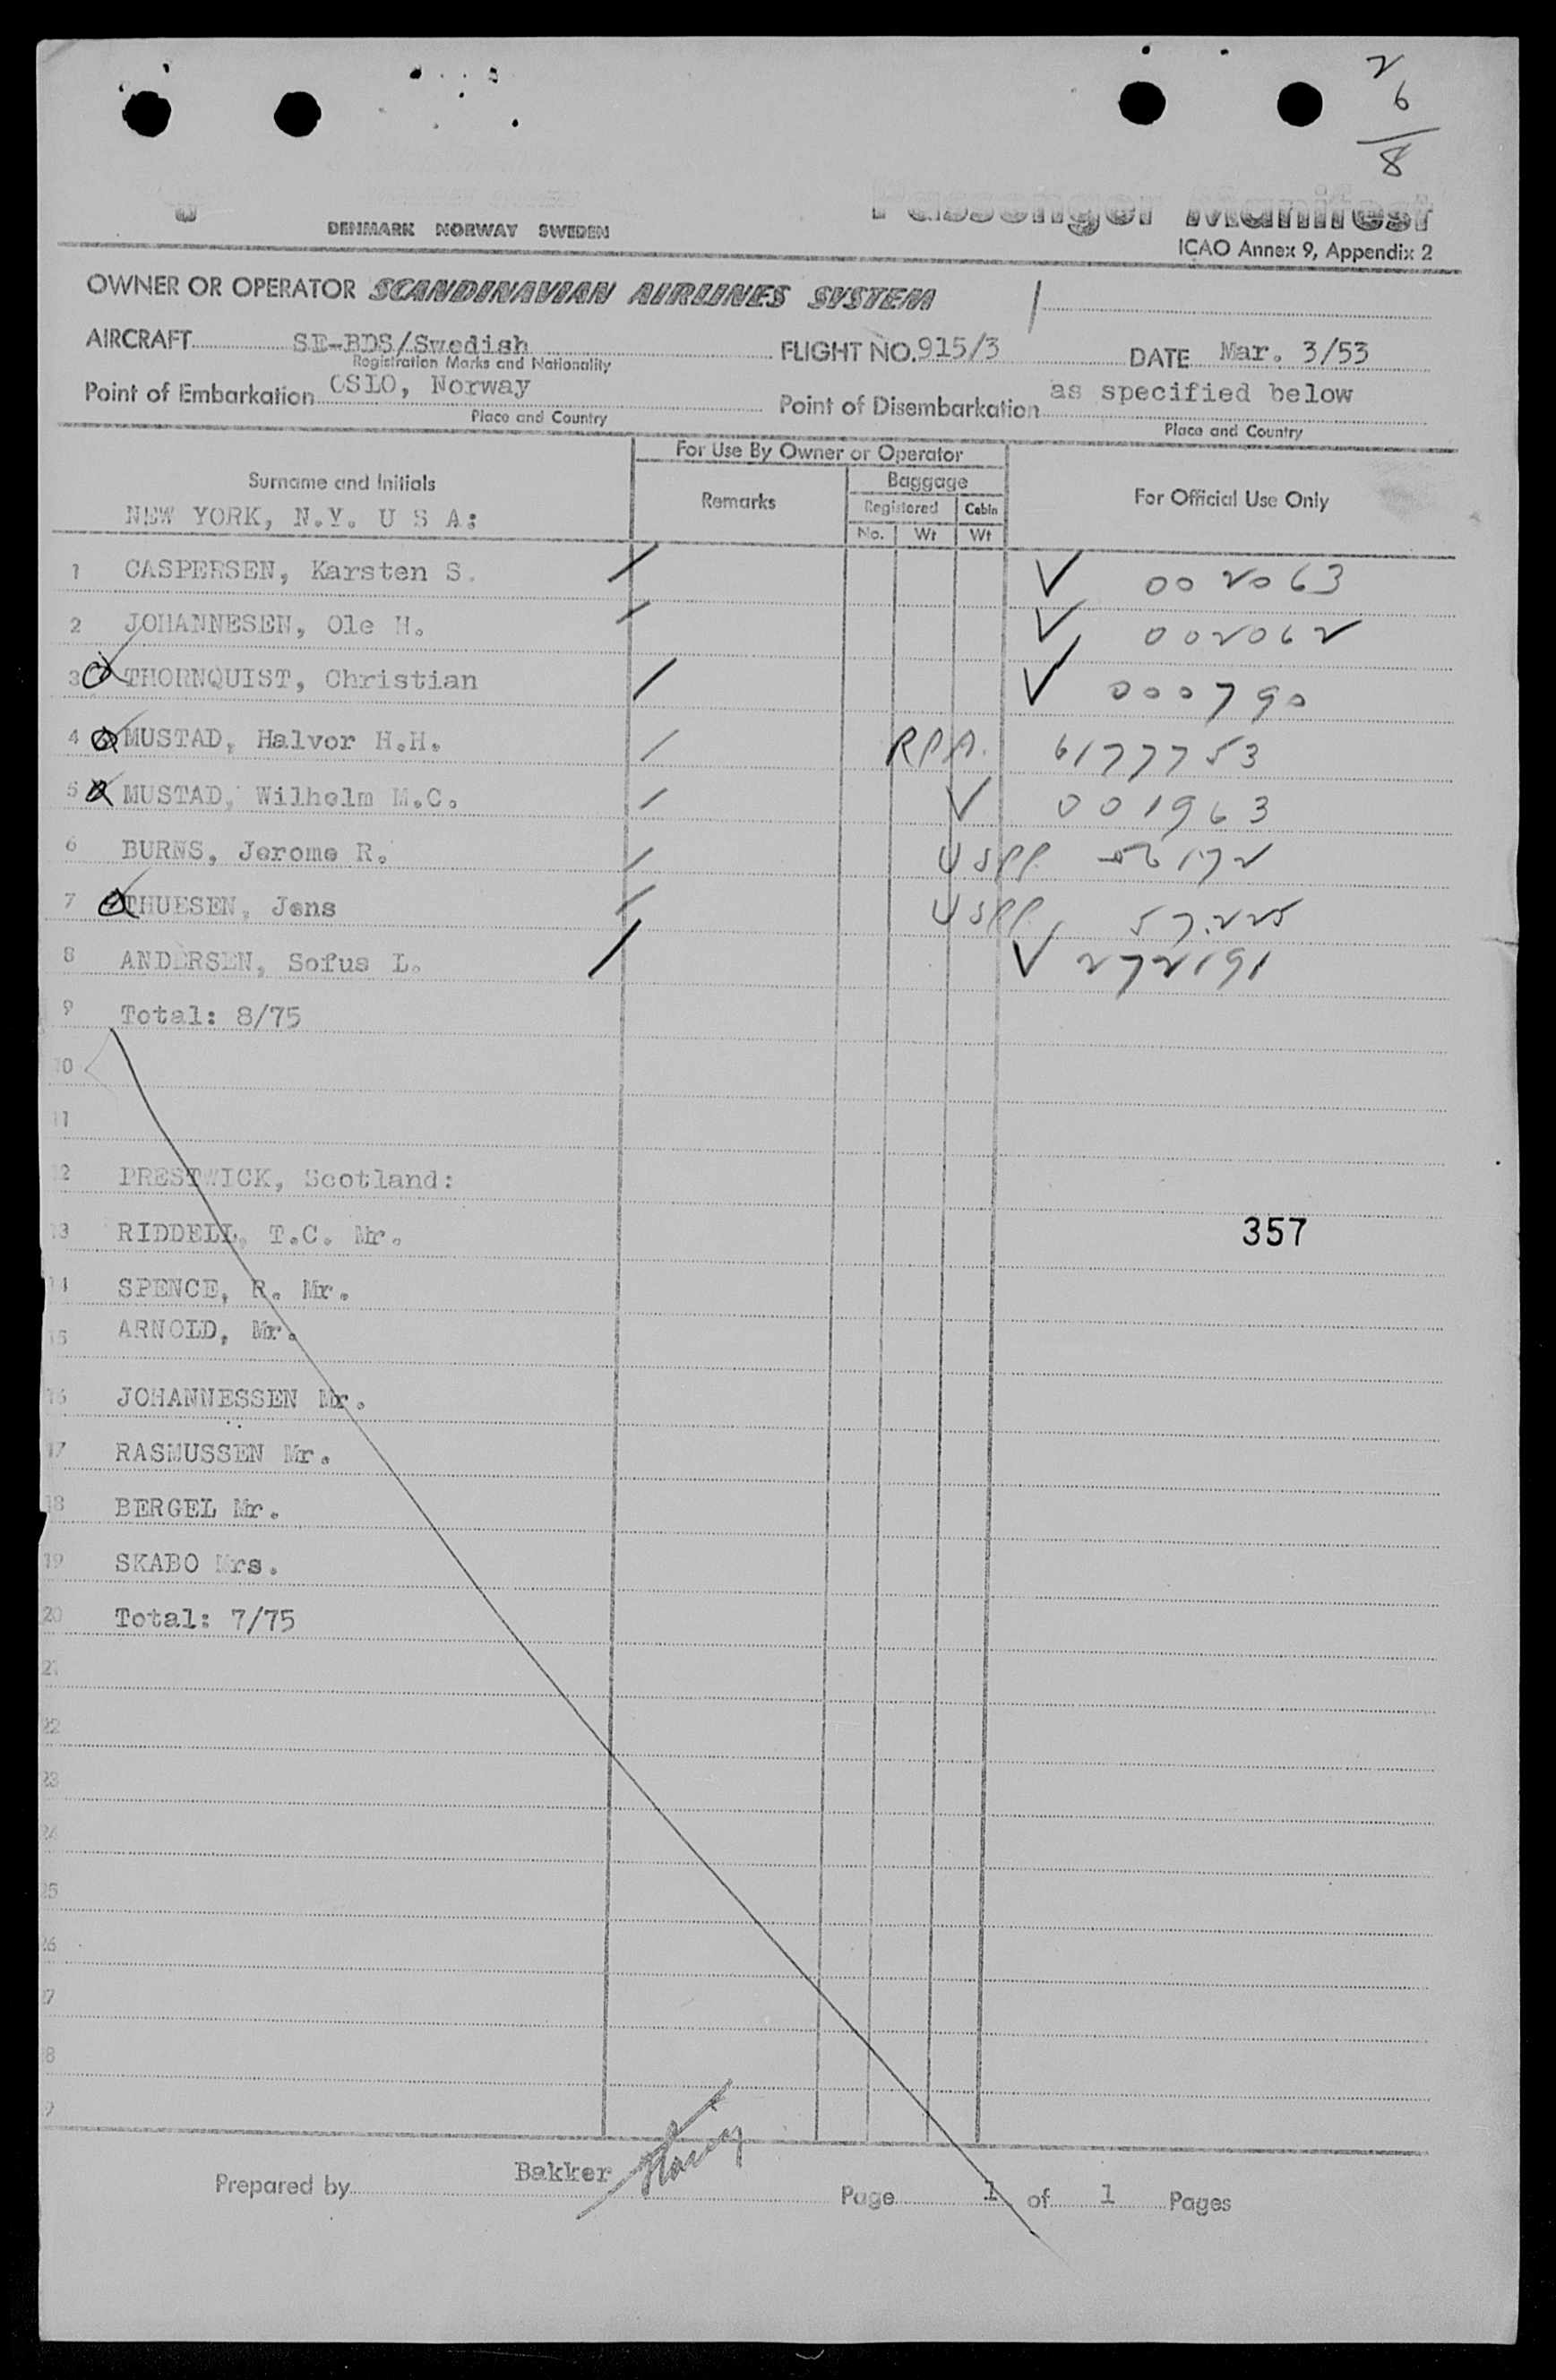 2
6
8
Passenger Manifest
DENMARK NORWAY SWEDEN
ICAO Annex 9, Appendix 2
OWNER OR OPERATOR SCANDINAVIAN AIRLINES SYSTEM
AIRCRAFT SE-BDS/Swedish FLIGHT NO. 915/3 DATE Mar. 3/53
Registration Marks and Nationality
Point of Embarkation OSLO, Norway Point of Disembarkation as specified below
Place and Country Place and Country
For Use By Owner or Operator
Surname and Initials Remarks Baggage For Official Use Only
Registered Cabin
NEW YORK, N.Y. U S A:
No. Wt Wt
1 CASPERSEN, Karsten S. 002063
2 JOHANNESEN, Ole H. 002062
3 THORNQUIST, Christian 000790
4 MUSTAD, Halvor H.H. RPA. 6177753
5 MUSTAD, Wilhelm M.C. 001963
6 BURNS, Jerome R. USPP 56172
7 THUESEN, Jens USPP. 57225
8 ANDERSEN, Sofus L. 272191
9 Total: 8/75
10
11
12 PRESTWICK, Scotland:
13 RIDDELL, T.C. Mr. 357
14 SPENCE, R. Mr.
15 ARNOLD, Mr.
16 JOHANNESSEN Mr.
17 RASMUSSEN Mr.
18 BERGEL Mr.
19 SKABO Mrs.
20 Total: 7/75
21
22
23
24
25
26
27
28
29
Prepared by Bakker Page 1 of 1 Pages